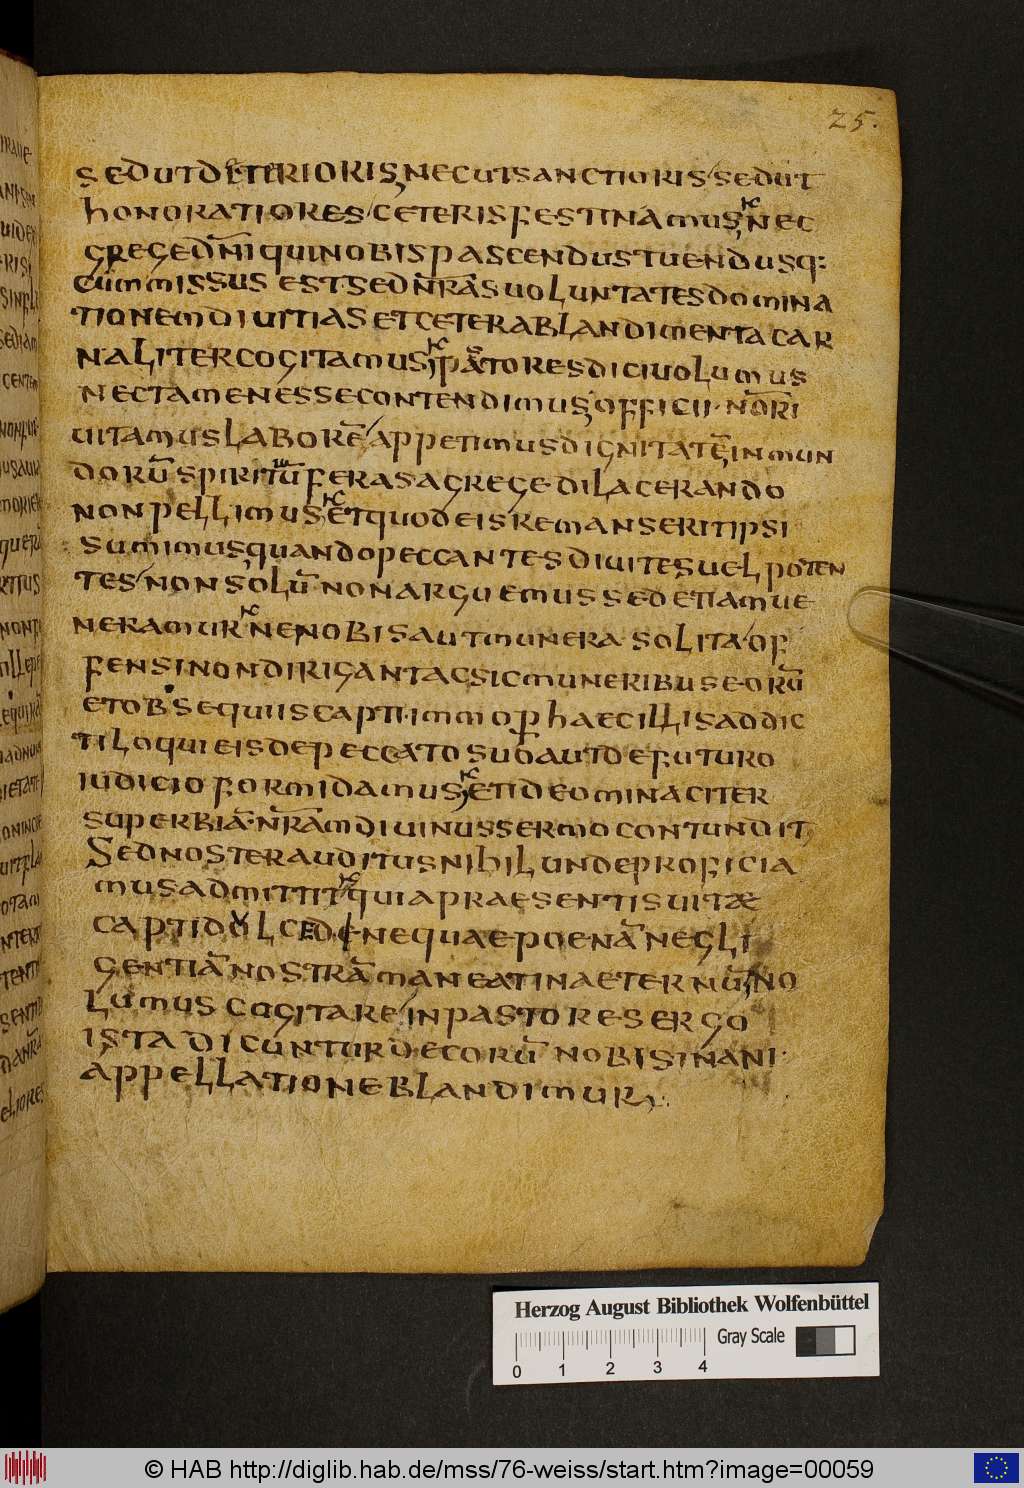 25.
SEDUTDETERIORIS NECUTSANCTIORIS SEDUT
HONORATIORES CETERISFESTINAMUS NEC
GREGEDNĪ QUINOBISPASCENDUSTUENDUSQ:
CUMMISSUS ESTSEDNRĀSUOLUNTATESDOMINA
TIONEMDIUITIASETCETERABLANDIMENTACAR
NALITERCOGITAMUS PASTORESDICIUOLUMUS
NECTAMENESSECONTENDIMUS OFFICII NORI
UITAMUSLABORĒ APPETIMUSDIGNITATĒ INMUN
DORŪSPIRITUŪFERASAGREGEDILACERANDO
NONPELLIMUS ETQUODEISREMANSERITIPSI
SUMIMUSQUANDOPECCANTESDIUITESUELPOTEN
TES NONSOLŪNONARGUEMUSSEDETIAMUE
NERAMUR NENOBISAUTMUNERA SOLITA OF
FENSINONDIRIGANTACSICMUNERIBUSEORŪ
ETOBSEQUIISCAPTIIMMOPHAECILLISADDIC
TILOQUIEISDEPECCATOSUOAUTDEFUTURO
IUDICIOFORMIDAMUS ETIDEOMINACITER
SUPERBIĀ NRĀMDIUINUSSERMOCONTUNDIT
SEDNOSTERAUDITUSNIHILUNDEPROFICIA
MUSADMITTIT QUIAPRAESENTISUITÆ
CAPTIDULCEDENEQUAEPOENĀNEGLI
GENTIĀNOSTRĀMANEATINAETERNŪ NO
LUMUS COGITARE INPASTORESERGO
ISTA DICUNTURDECORŪ NOBISINANI
APPELLATIONEBLANDIMUR
Herzog August Bibliothek Wolfenbüttel
Gray Scale
0 1 2 3 4
© HAB http://diglib.hab.de/mss/76-weiss/start.htm?image=00059